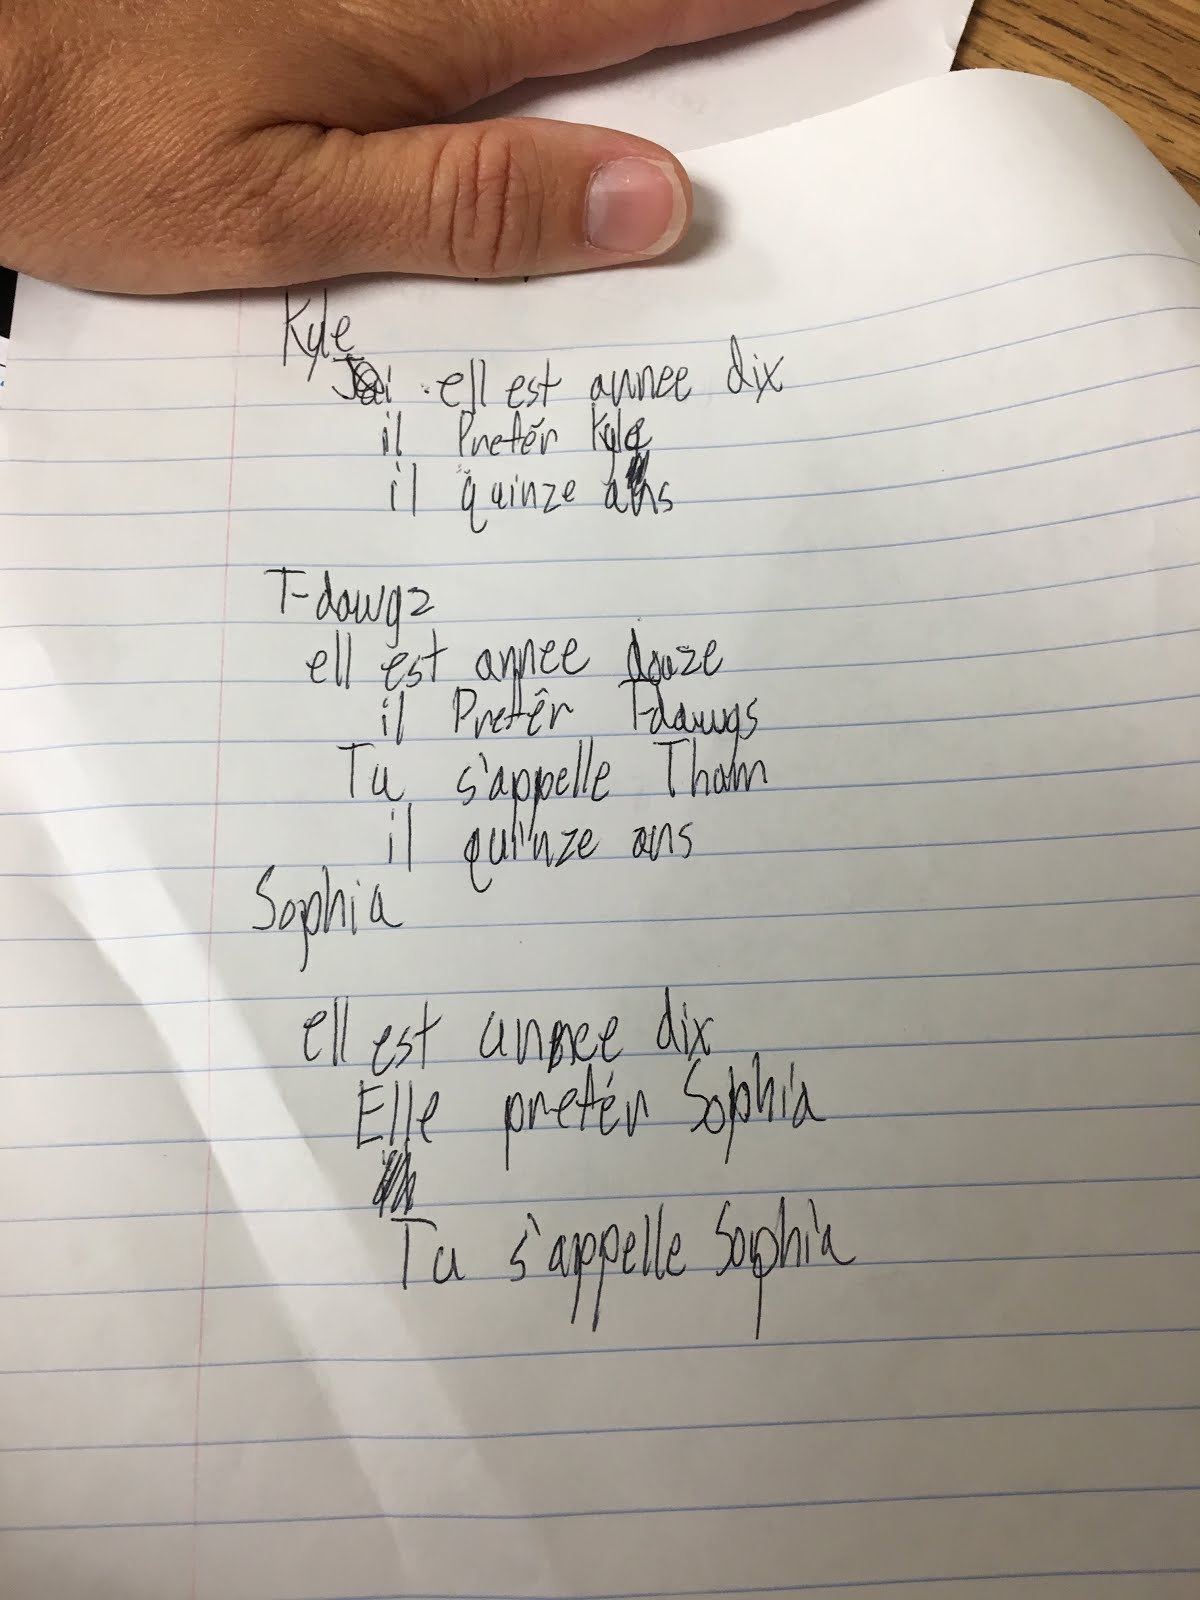 Kyle
ell est annee dix
il Prefér Kyle
il quinze ans
T-dawgz
ell est annee douze
il Prefêr T-dawgs
Tu s'appelle Thom
il quinze ans
Sophia
ell est annee dix
Elle prefér Sophia
Tu s'appelle Sophia